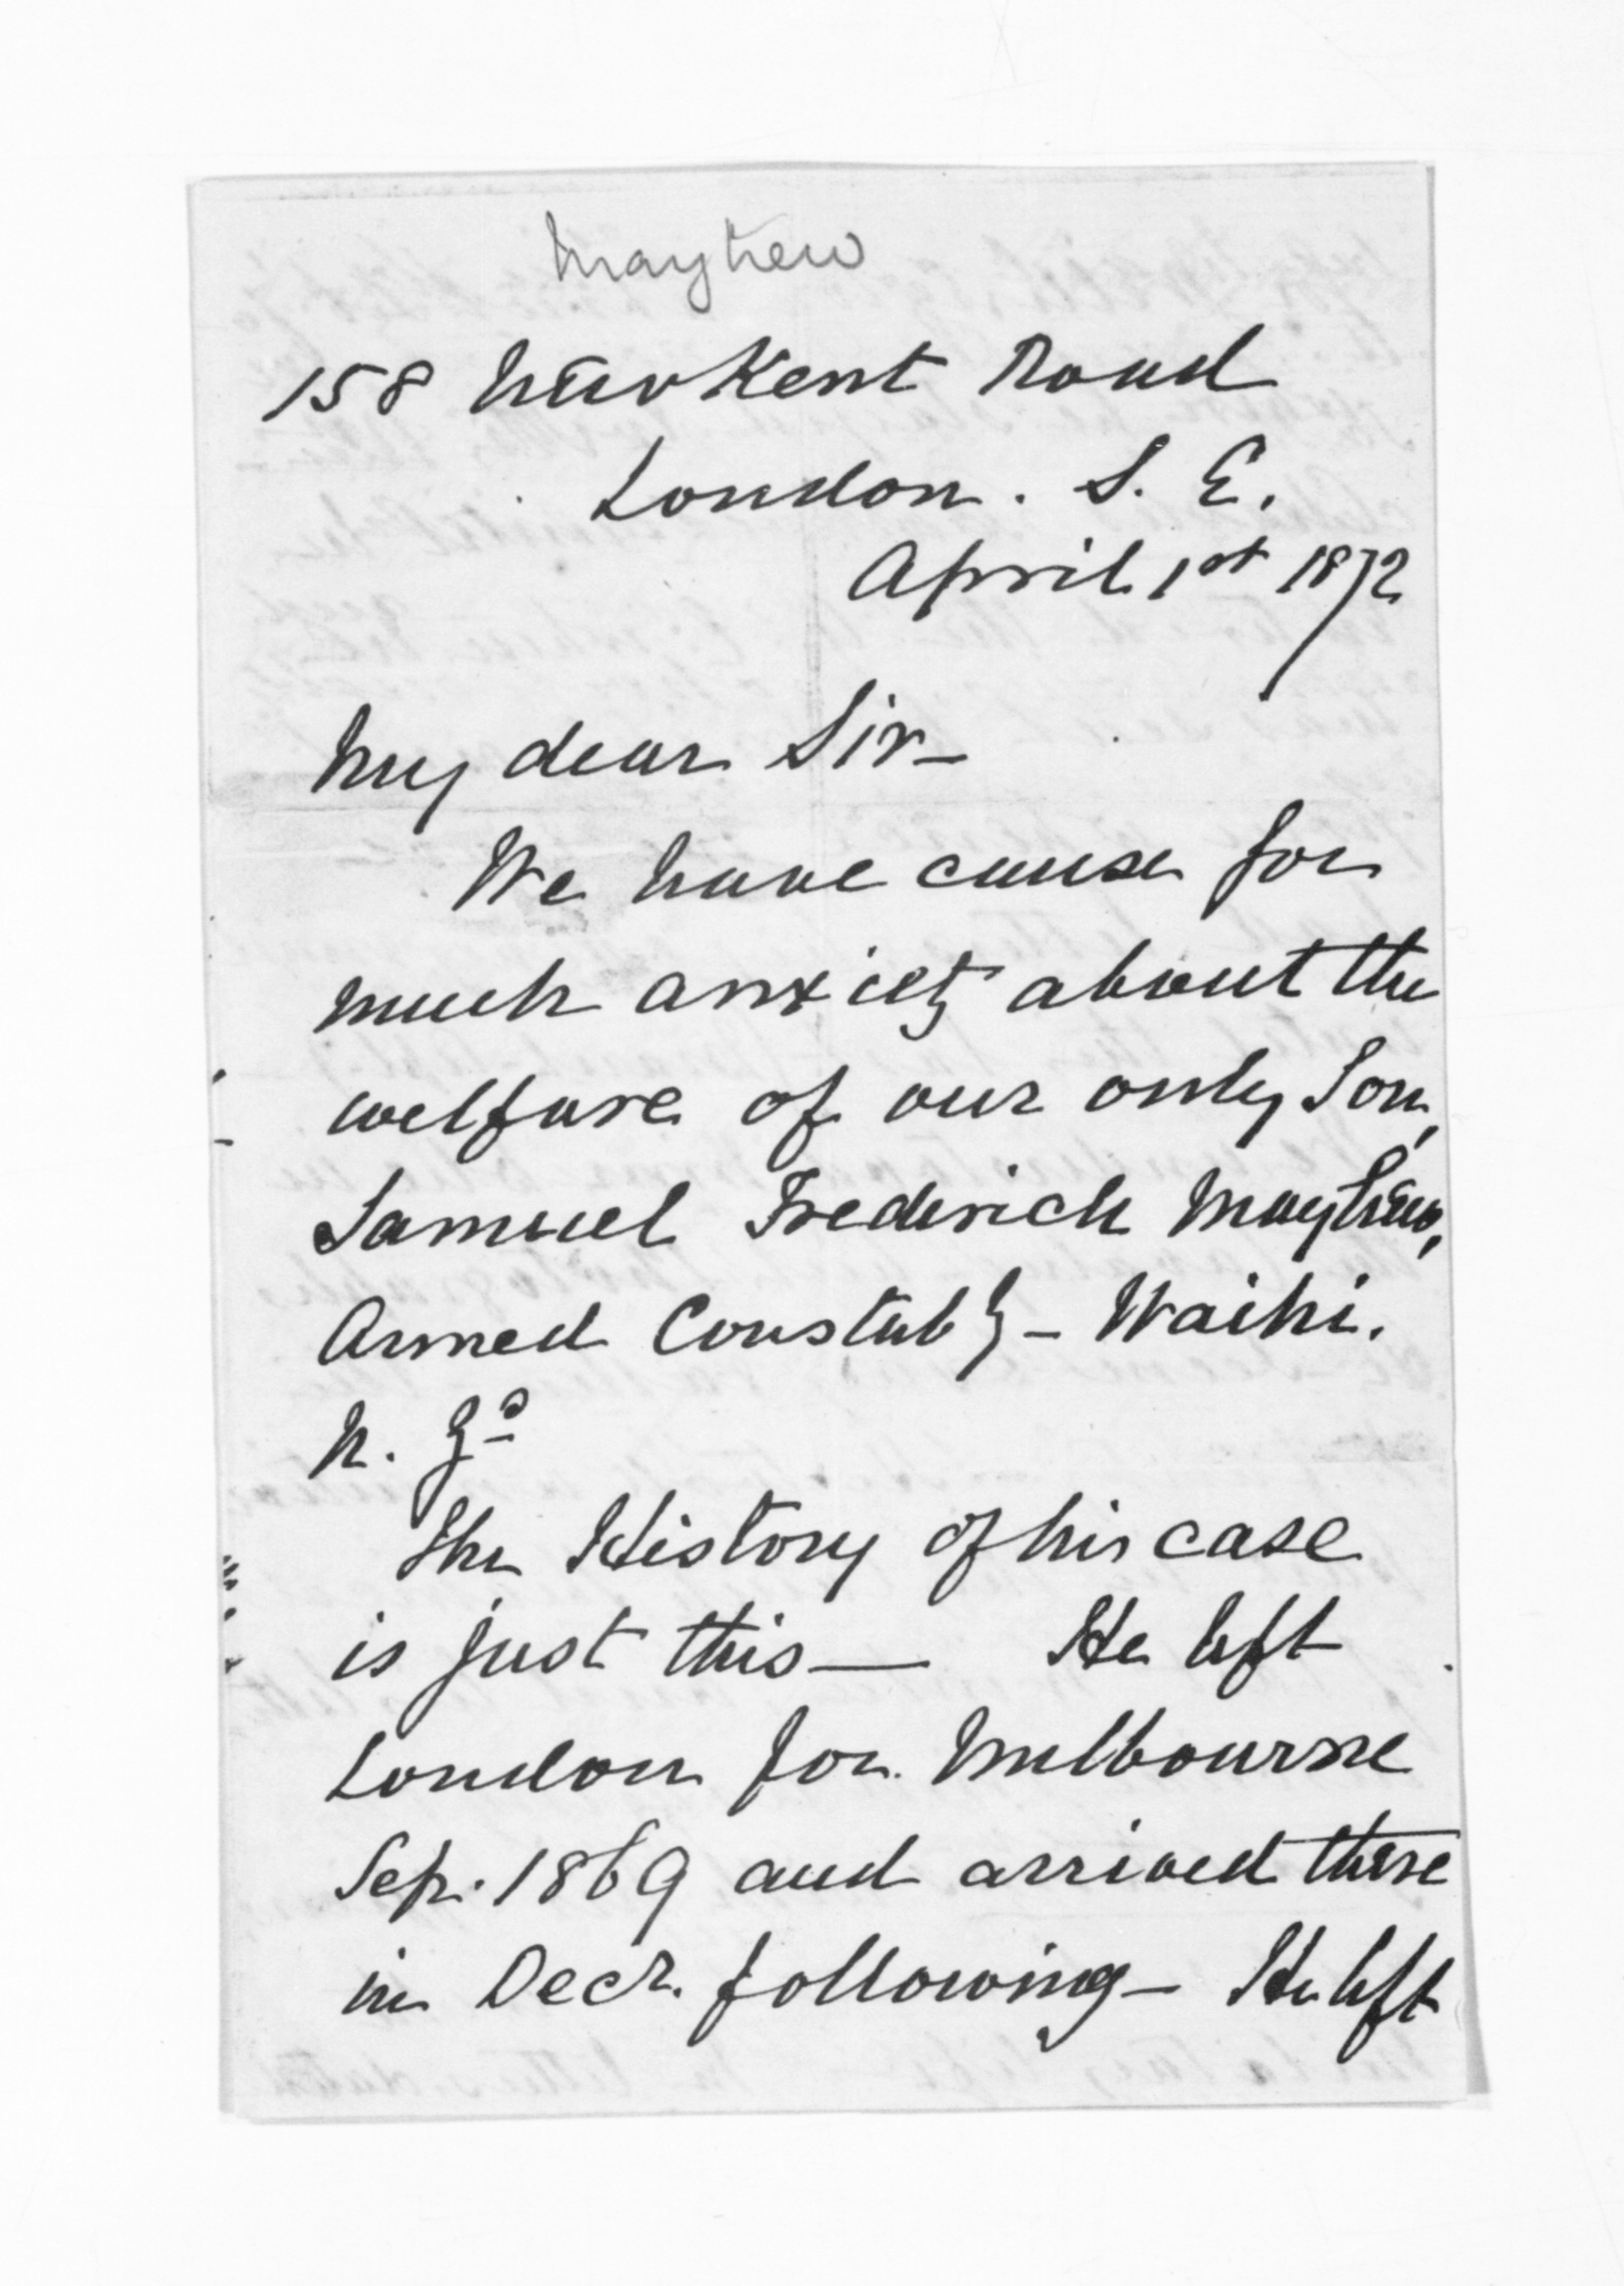 Mayhew
158 New Kent Road
London. S. E.
April 1st 1872
My dear Sir -
We have cause for
much anxiety about the
welfare of our only Son,
Samuel Frederick Mayhew,
Armed Constaby - Waihi.
N. Zd
The History of his case
is just this — He left
London for Melbourne
Sep. 1869 and arrived there
in Decr. following - He left